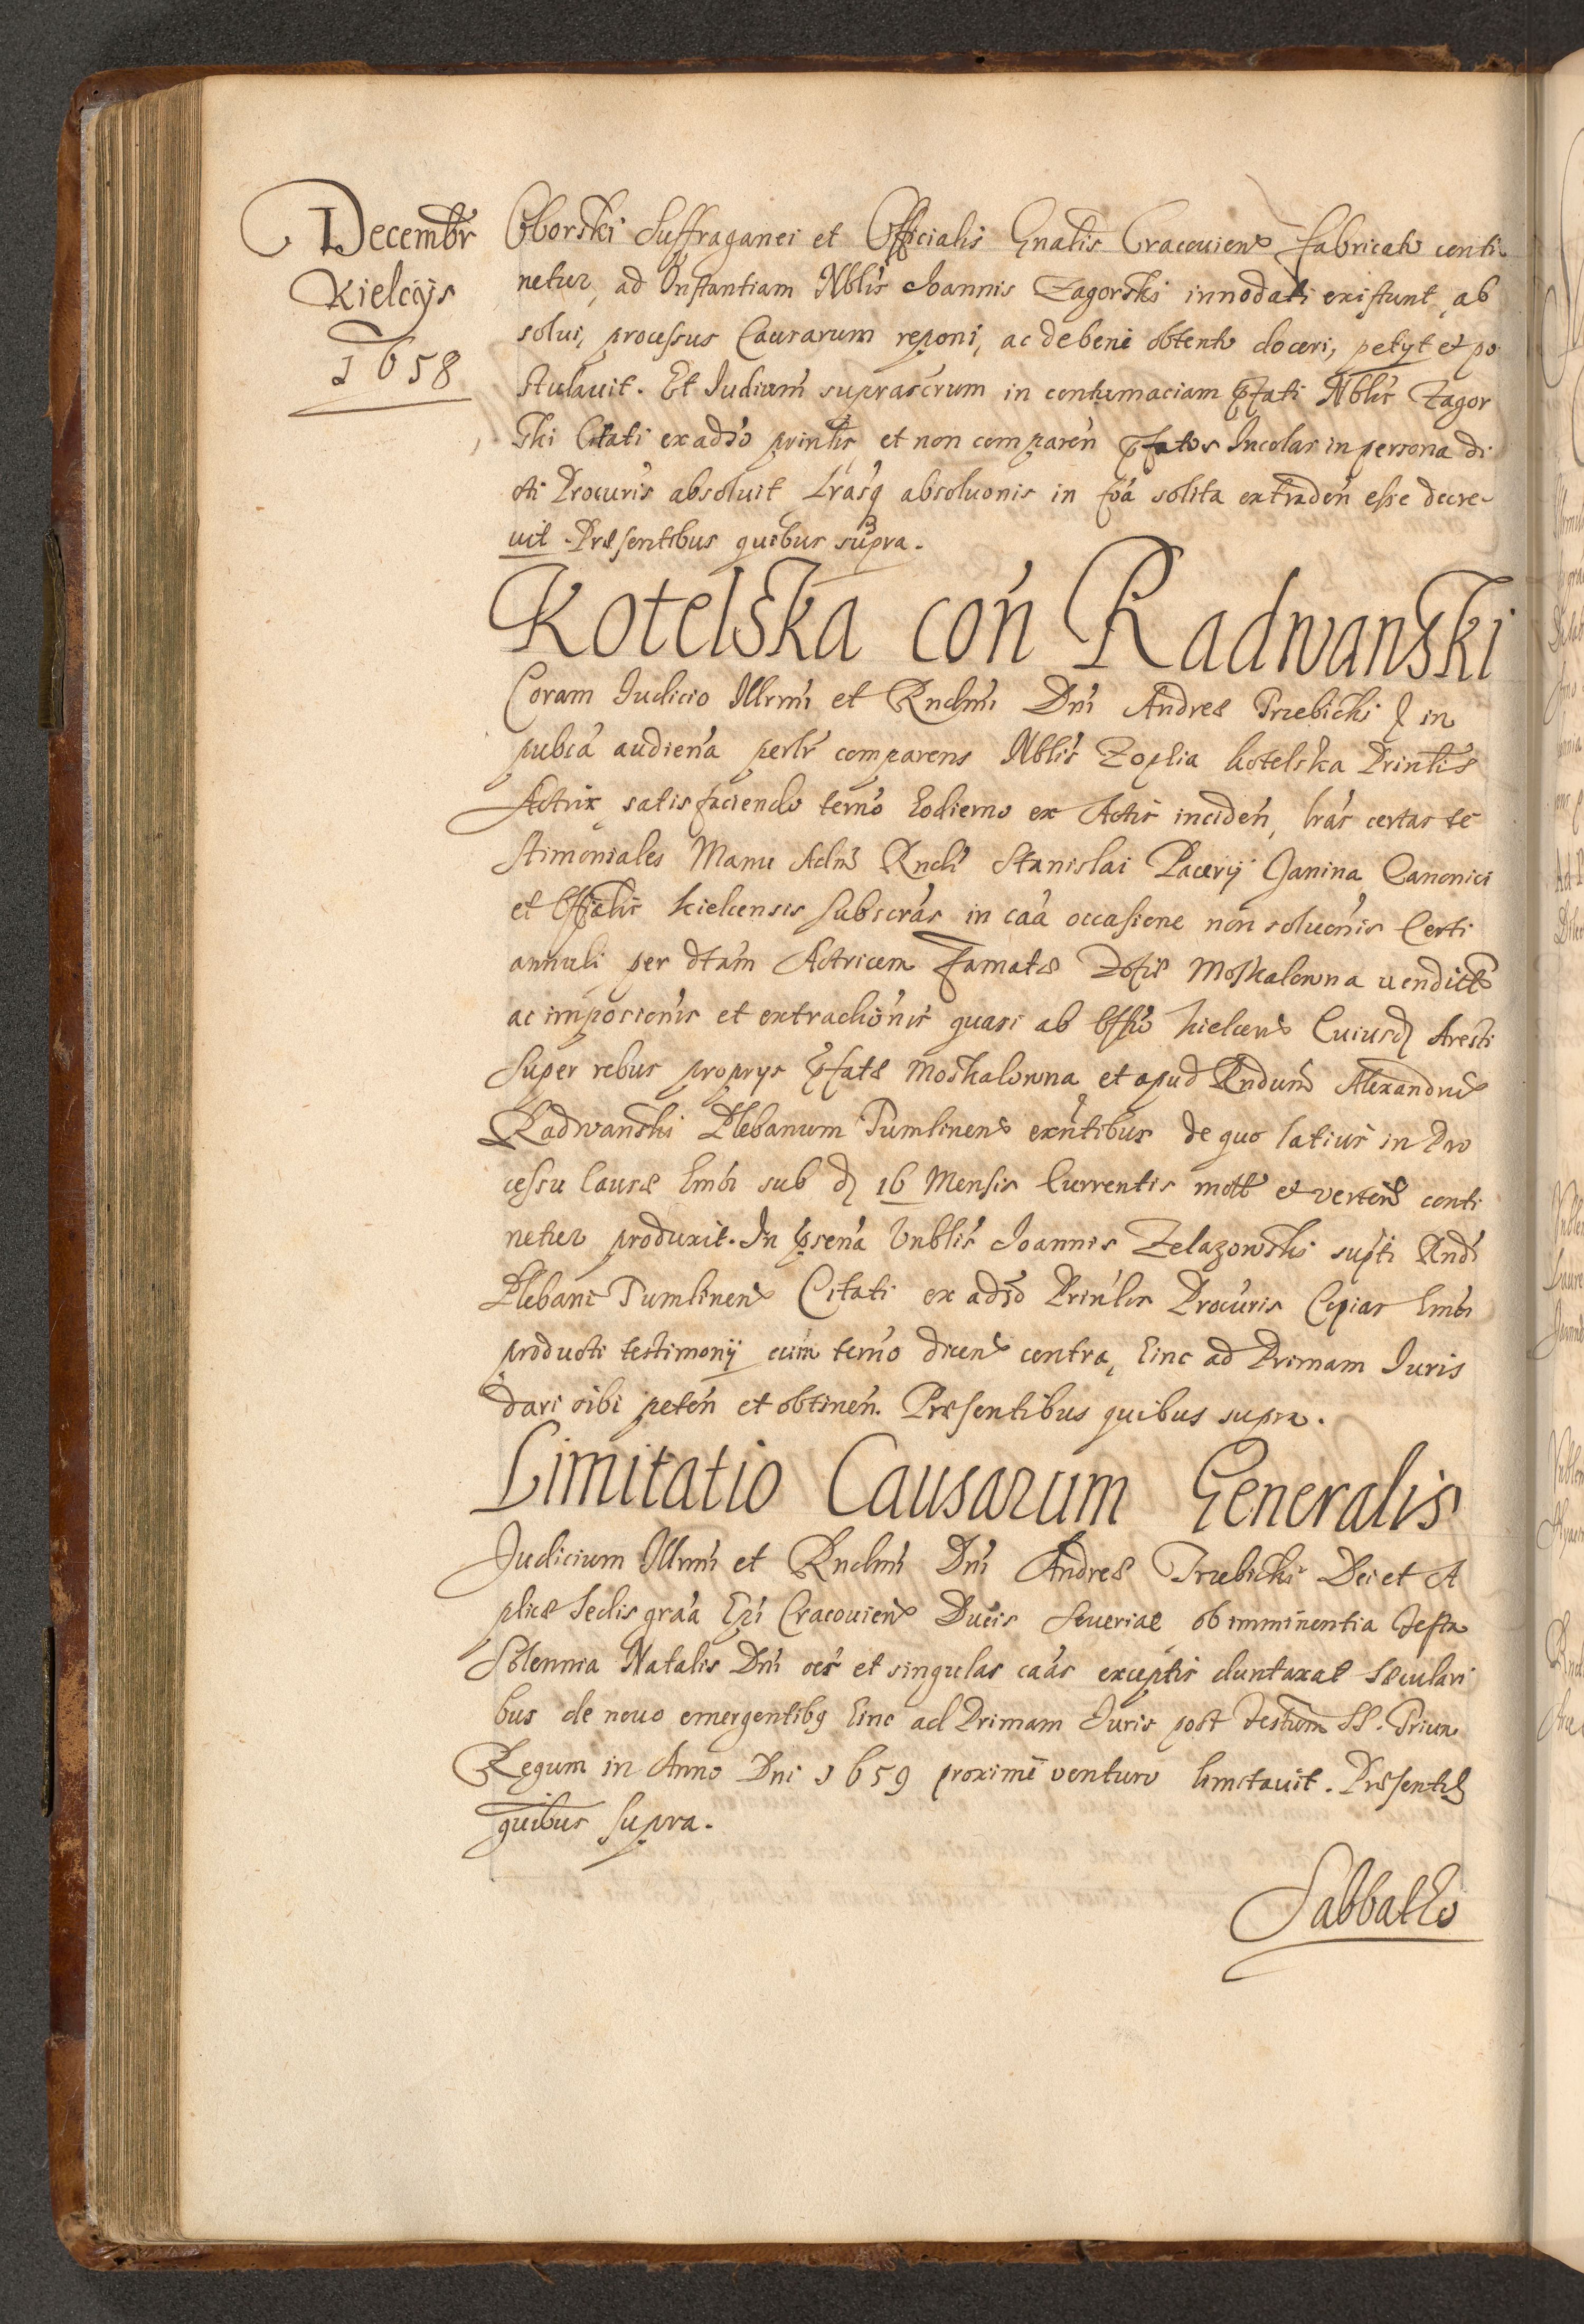 Decembr̃
Kielcijs
1658
Oborski Suffraganei et Officialis Gnalis Cracouien̄ fabricato conti
netur, ad Instantiam Nblis Joannis Zagorski innodati existunt, ab
solui, processus Causarum reponi, ac de bene obtento doceri, petyt et po
stulauit. Et Iudicium suprascrum in contumaciam p̄fati Nblis Zagor
ski Citati ex adso prinlis et non comparen̄ p̄fatos Incolas in persona di
cti Procuris absoluit Lrasq absoluonis in foa solita extraden̄ esse decre-
uit. Præsentibus quibus supra.
Kotelska con̄ Radwanski
Coram Iudicio Illrmi et Rndmi Dni Andreæ Trzebicki in
pubca audien̄a perlr comparens Nblis Zophia Kotelska Prinlis
Actrix satisfaciendo termo hodierno ex Actis inciden̄, Lras certas te
stimoniales Manu Adm̄ Rndi Stanislai Pacerij Janina Canonici
et Offialis Kielcensis subscras in caa occasione non soluonis Certi
annuli per dtam Actricem Famatæ Zofiæ Moskalowna vendit
ac imposionis et extractionis quasi ab Offio Kielcen̄ Cuiusd Aresti
super rebus proprys p̄fatæ Moskalowna et apud Rndum Alexandru
Radwanski Plebanum Tumlinen̄ exn̄tibus de quo latius in Pro
cessu Causæ hmoi sub d 16 Mensis Currentis mott et verten̄ conti
netur produxit. In p̄sen̄a Vnblis Joannis Zelazowski supti Rndi
Plebani Tumlinen̄ Citati ex adso Prinlis Procuris Copias hmoi
producti testimonij cum termo dicen̄ contra, hinc ad Primam Iuris
dari sibi peten̄ et obtinen̄. Præsentibus quibus supra.
Limitatio Causarum Generalis
Judicium Illrmi et Rndmi Dni Andreæ Trzebicki Dei et A
plicæ Sedis graa Epi Cracouien̄ Ducis Seueriæ ob imminentia Festa
Solennia Natalis Dni oēs et singulas caas exceptis duntaxat sæculari
bus de nouo emergentibq hinc ad Primam Iuris post Festum SS. Trium
Regum in Anno Dni 1659 proxime venturo limitauit. Præsentib
quibus supra.
Sabbatho